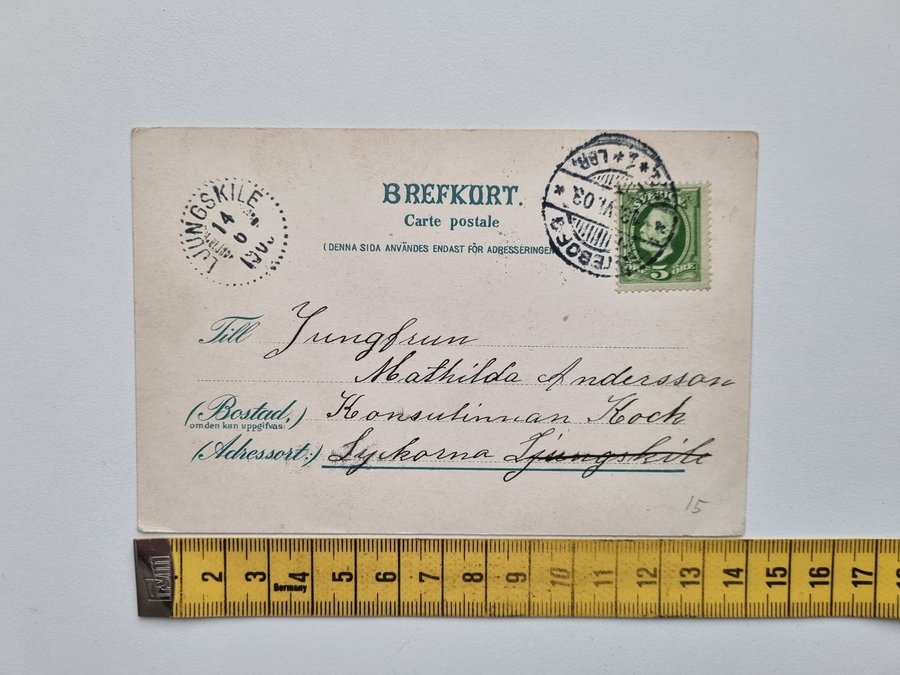 BREFKORT.
Carte postale
(DENNA SIDA ANVÄNDES ENDAST FÖR ADRESSERINGEN
LJUNGSKILE
14
9
LBR.
VI. 03
5 ÖRE
Till Jungfrun
Mathilda Andersson
(Bostad,) Konsulinnan Koch
om den kan uppgifvas:
(Adressort:) Lyckorna Ljungskile
15
2 3 4 5 6 7 8 9 10 11 12 13 14 15 16 17
Germany